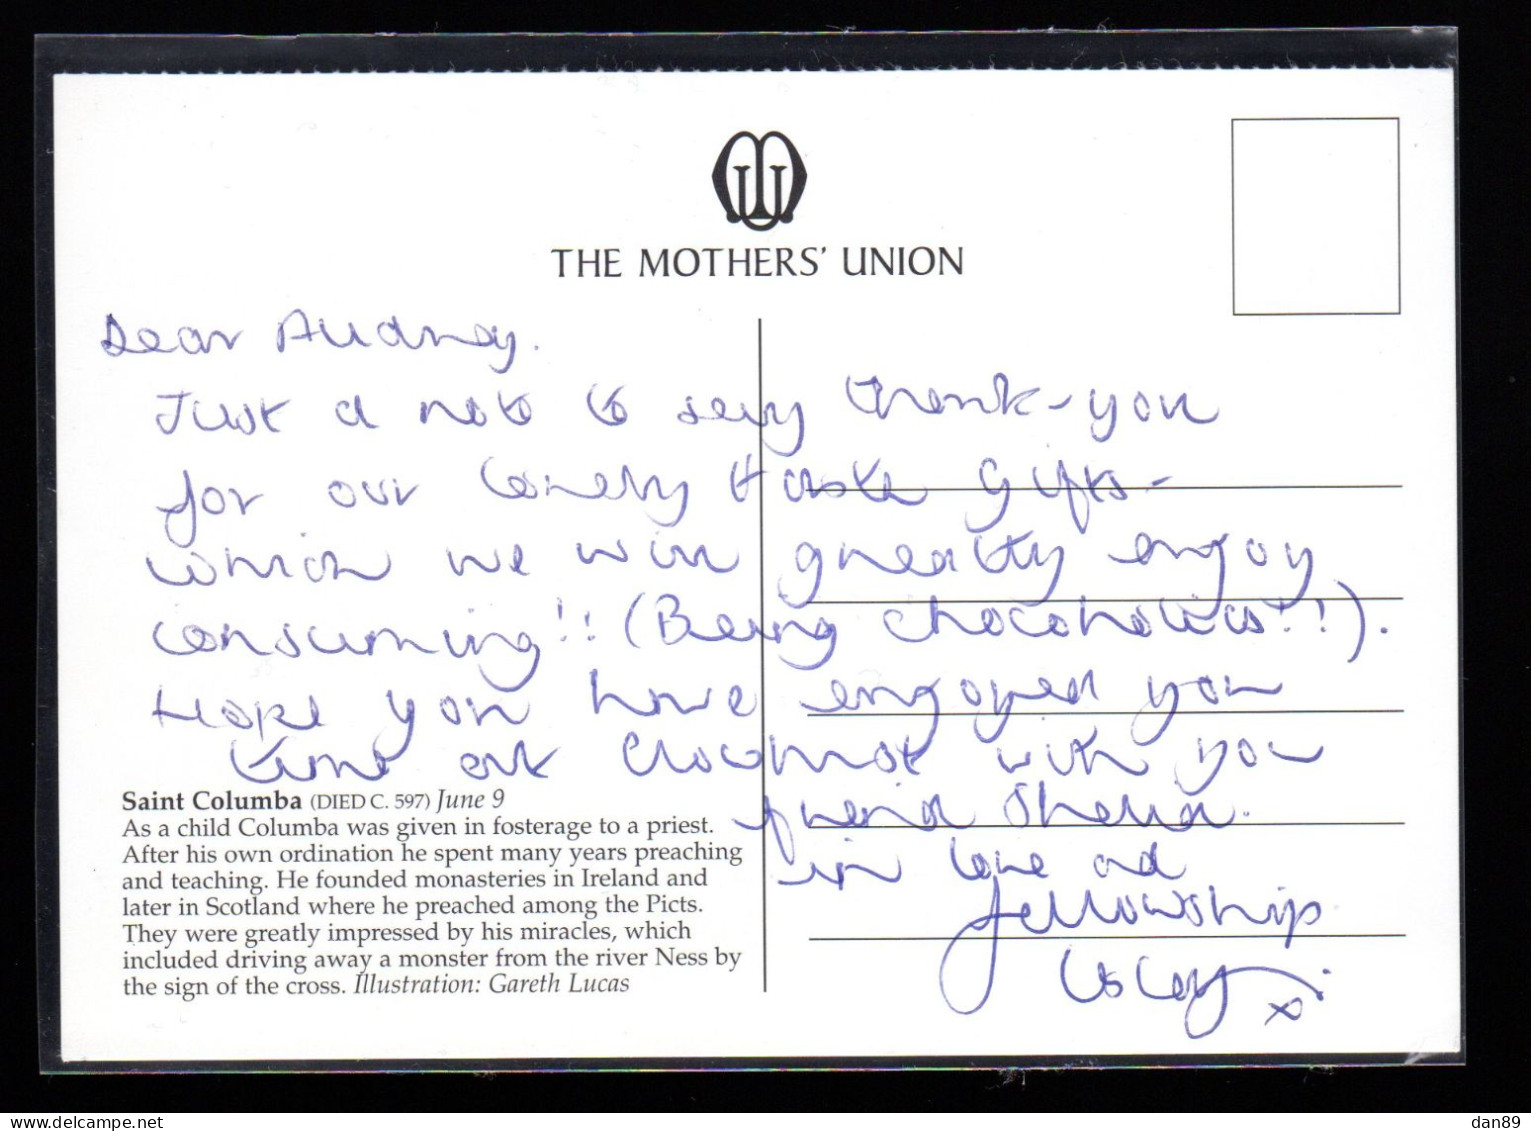 THE MOTHERS' UNION
Dear Audrey.
Just a note to say thank-you
for our lovely Easter gifts-
which we will greatly enjoy
consuming!! (Being chocoholics!!).
Hope you have enjoyed you
time at with you
friend Sheila.
in love and
fellowship
Lesley x
Saint Columba (DIED C. 597) June 9
As a child Columba was given in fosterage to a priest.
After his own ordination he spent many years preaching
and teaching. He founded monasteries in Ireland and
later in Scotland where he preached among the Picts.
They were greatly impressed by his miracles, which
included driving away a monster from the river Ness by
the sign of the cross. Illustration: Gareth Lucas
delcampe.net
dan89